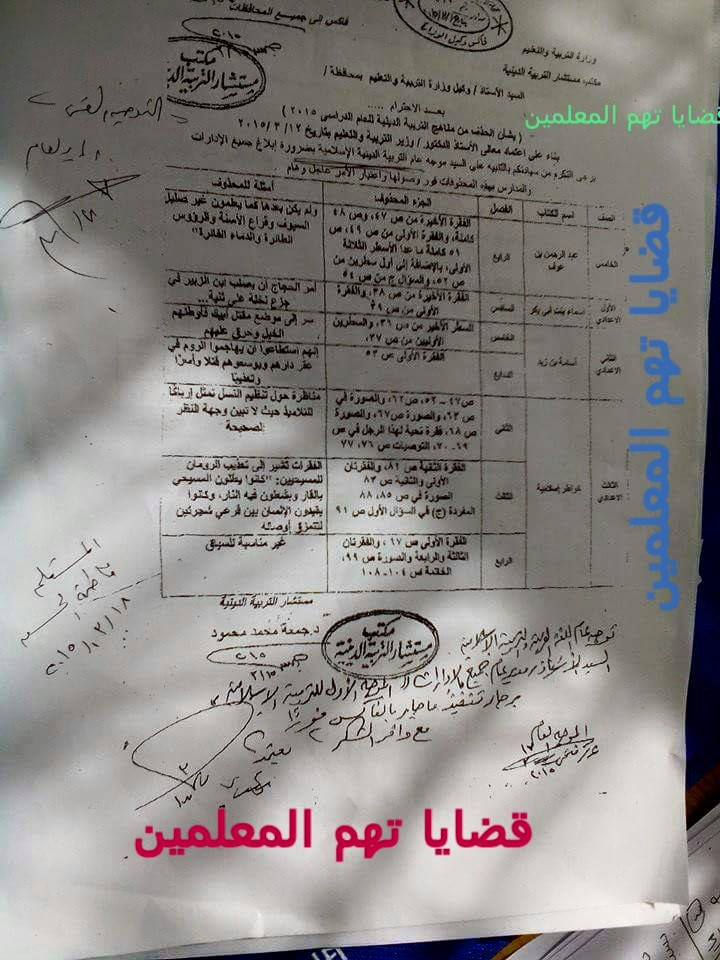 فاكس إلى جميع المحافظات
فاكس وكيل الوزارة
٢٠١٥
وزارة التربية والتعليم
مكتب مستشار التربية الدينية
مكتب
مستشار التربية الدينية
السيد الأستاذ / وكيل وزارة التربية والتعليم بمحافظة /
بعد الاحترام ....
( بشأن الحذف من مناهج التربية الدينية للعام الدراسى ٢٠١٥ )
قضايا تهم المعلمين
بناء على اعتماد معالى الأستاذ الدكتور / وزير التربية والتعليم بتاريخ ٢٠١٥/٣/١٢
يرجى التكرم من سيادتكم بالتنبيه على السيد موجه عام التربية الدينية الإسلامية بضرورة إبلاغ جميع الإدارات
والمدارس بهذه المحذوفات فور وصولها واعتبار الأمر عاجل وهام
الصف اسم الكتاب الفصل الجزء المحذوف أمثلة للمحذوف
الخامس عبد الرحمن بن عوف الرابع
الفقرة الأخيرة من ص ٤٧، وص ٤٨
كاملة، والفقرة الأولى من ص ٤٩، ص
٥١ كاملة ما عدا الأسطر الثلاثة
الأولى، بالإضافة إلى أول سطرين من
ص ٥٢، والسؤال ج من ص ٥٤
ولم يكن بعدها كما يعلمون غير صليل
السيوف وقراع الأسنة والرؤوس
الطائرة والدماء الفائرة"
الأول الاعدادي أسماء بنت أبى بكر السادس
الفقرة الأخيرة من ص ٣٨، والفقرة
الأولى من ص ٣٩
أمر الحجاج أن يصلب ابن الزبير في
جزع نخلة على ثنية...
الثاني الاعدادي أسامة بن زيد
الخامس
السطر الأخير من ص ٣٦، والسطرين
الأوليين من ص ٣٧.
سر إلى موضع مقتل أبيك فأوطئهم
الخيل وحرق عليهم
السابع
الفقرة الأولى ص ٥٣
إنهم استطاعوا أن يهاجموا الروم في
عقر دارهم ويوسعوهم قتلا وأسرا
وتعذيبا
الثالث الاعدادي خواطر إسلامية
الثاني
ص ٤٧ - ٥٢، ص ٦٢، والصورة في
ص ٦٣، والصورة ص ٦٧، والصورة
ص ٦٨، فقرة تحية لهذا الرجل في ص
٦٩ - ٧٠، التوصيات ص ٧٦، ٧٧
مناظرة حول تنظيم النسل تمثل إرباكا
للتلاميذ حيث لا تبين وجهة النظر
الصحيحة
الثالث
الفقرة الثانية ص ٨١، والفقرتان
الأولى والثانية ص ٨٣
الصورة في ص ٨٥، ٨٨
المفردة (ج) في السؤال الأول ص ٩١
الفقرات تشير إلى تعذيب الرومان
للمسيحيين: "كانوا يطلون المسيحي
بالقار ويشعلون فيه النار، وكانوا
يقيدون الإنسان بين فرعي شجرتين
لتتمزق أوصاله
الرابع
الفقرة الأولى ص ٩٧، والفقرتان
الثالثة والرابعة والصورة ص ٩٩،
الخاتمة ص ١٠٤-١٠٨
غير مناسبة للسياق
مستشار التربية الدينية
د.جمعة محمد محمود
مكتب
مستشار التربية الدينية
قضايا تهم المعلمين
المستلم
٢٠١٥/٣/١٨
برجاء تنفيذ ما جاء بالفاكس فورا
مع وافر الشكر
يعتمد
الموجه العام
قضايا تهم المعلمين